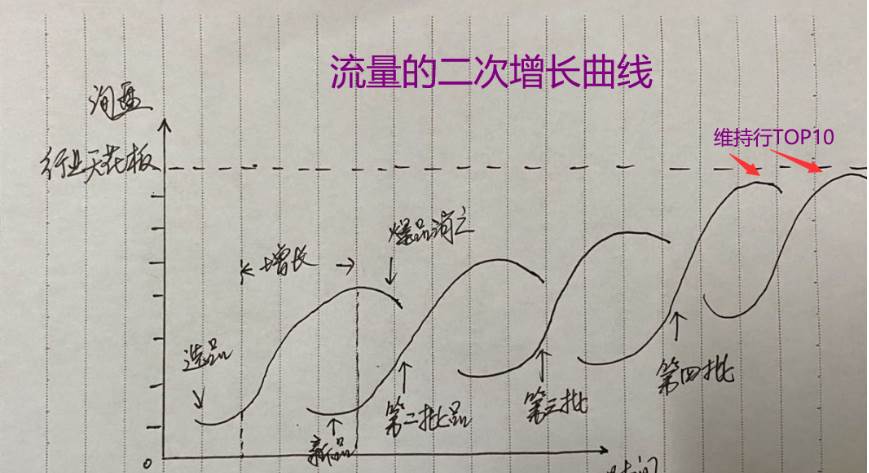 流量的二次增长曲线
询盘
行业天花板
维持行TOP10
增长
爆品消亡
选品
新品
第二批品
第三批
第四批
0
时间